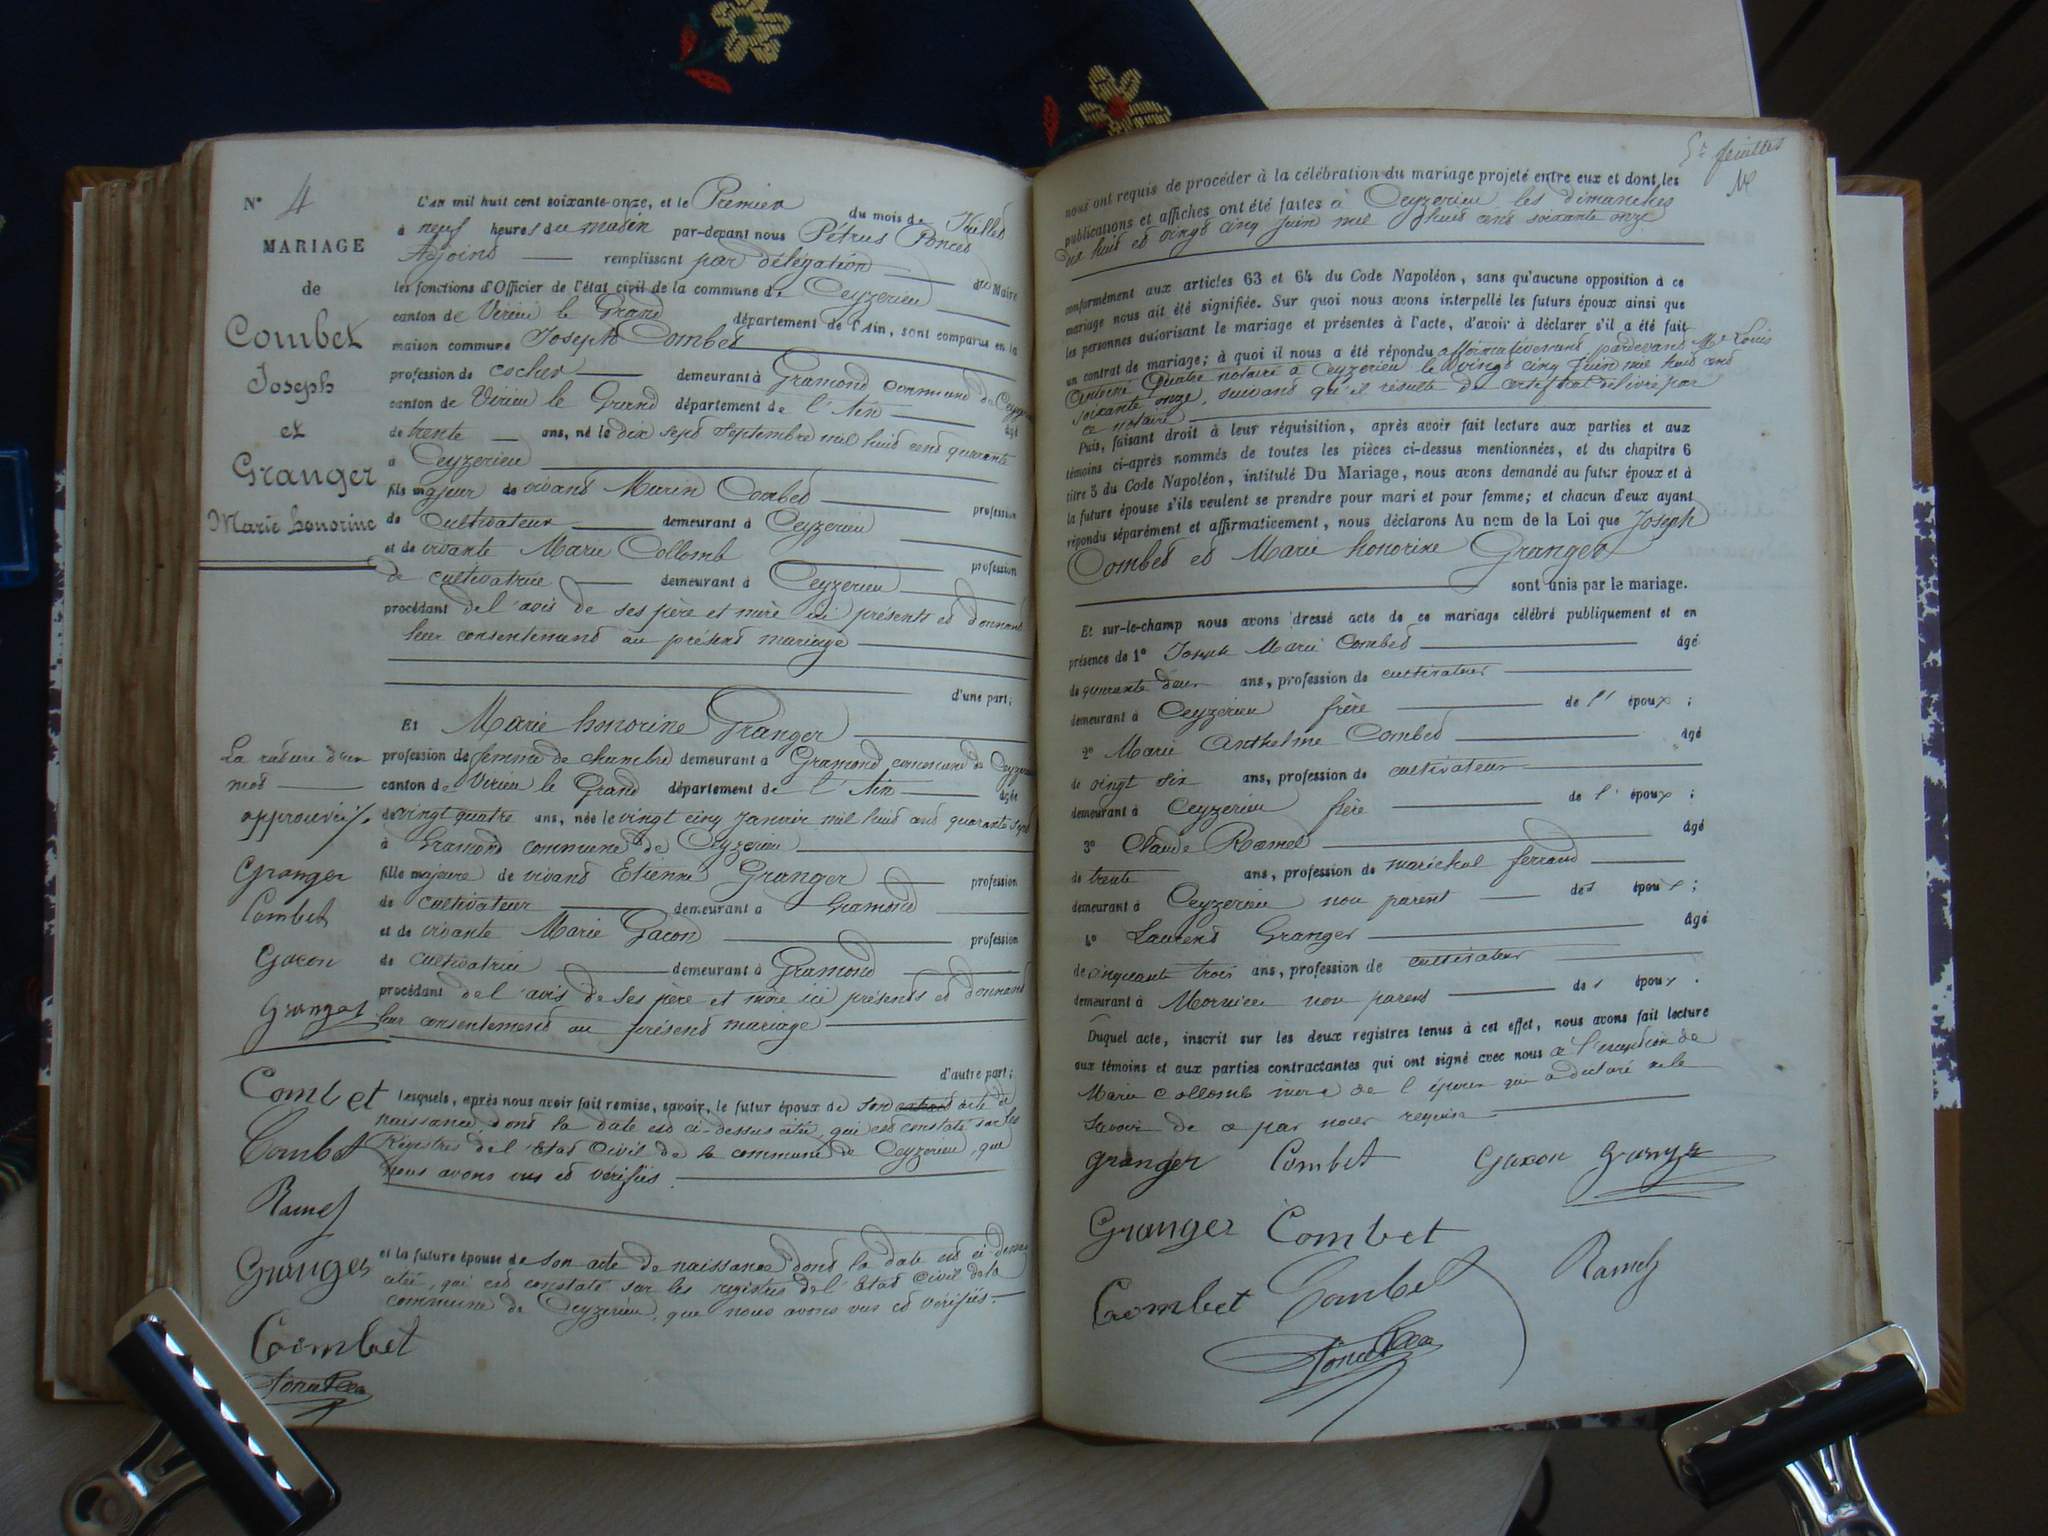 N° 4
MARIAGE
de
Combet
Joseph
et
Granger
Marie honorine
L'an mil huit cent soixante-onze, et le Premier du mois de Juillet
à neuf heures du matin par-devant nous Pétrus Poncet
Adjoint remplissant par délégation du Maire
les fonctions d'Officier de l'état civil de la commune de Ceyzerieu
canton de Virieu le Grand département de l'Ain, sont comparus en la
maison commune Joseph Combet
profession de cocher demeurant à Gramond commune de Ceyzerieu
canton de Virieu le Grand département de l'Ain âgé
de trente ans, né le dix sept Septembre mil huit cent quarante
à Ceyzerieu
fils majeur de vivant Marin Combet profession
de Cultivateur demeurant à Ceyzerieu
et de vivante Marie Collomb profession
de cultivatrice demeurant à Ceyzerieu
procédant de l'avis de ses père et mère ici présents et donnant
leur consentement au présent mariage
d'une part;
Et Marie honorine Granger
profession de femme de chambre demeurant à Gramond commune de Ceyzerieu
canton de Virieu le Grand département de l'Ain âgée
de vingt quatre ans, née le vingt cinq Janvier mil huit cent quarante sept
à Gramond commune de Ceyzerieu
fille majeure de vivant Etienne Granger profession
de cultivateur demeurant à Gramond
et de vivante Marie Gacon profession
de cultivatrice demeurant à Gramond
procédant de l'avis de ses père et mère ici présents et donnant
leur consentement au présent mariage
d'autre part;
Lesquels, après nous avoir fait remise, savoir, le futur époux de son extrait acte de
naissance, dont la date est ci-dessus citée, qui est constaté sur les
Registres de l'Etat Civil de la commune de Ceyzerieu, que
nous avons vus et vérifiés.
et la future épouse de son acte de naissance dont la date est ci-dessus
citée, qui est constaté sur les registres de l'Etat Civil de la
commune de Ceyzerieu, que nous avons vus et vérifiés.
La rature d'un
mot
approuvée
Granger
Combet
Gacon
Granger
Combet
Combet
Ramel
Granger
Combet
5e feuillet
nous ont requis de procéder à la célébration du mariage projeté entre eux et dont les
publications et affiches ont été faites à Ceyzerieu les dimanches
dix huit et vingt cinq Juin mil huit cent soixante onze
conformément aux articles 63 et 64 du Code Napoléon, sans qu'aucune opposition à ce
mariage nous ait été signifiée. Sur quoi nous avons interpellé les futurs époux ainsi que
les personnes autorisant le mariage et présentes à l'acte, d'avoir à déclarer s'il a été fait
un contrat de mariage; à quoi il nous a été répondu affirmativement pardevant Me Louis
Antoine Quatre notaire à Ceyzerieu le vingt cinq Juin mil huit cent
soixante onze, suivant qu'il résulte du certificat délivré par
ce notaire
Puis, faisant droit à leur réquisition, après avoir fait lecture aux parties et aux
témoins ci-après nommés de toutes les pièces ci-dessus mentionnées, et du chapitre 6
titre 5 du Code Napoléon, intitulé Du Mariage, nous avons demandé au futur époux et à
la future épouse s'ils veulent se prendre pour mari et pour femme; et chacun d'eux ayant
répondu séparément et affirmativement, nous déclarons Au nom de la Loi que Joseph
Combet et Marie honorine Granger
sont unis par le mariage.
Et sur-le-champ nous avons dressé acte de ce mariage célébré publiquement et en
présence de 1° Joseph Marie Combet âgé
de quarante deux ans, profession de cultivateur
demeurant à Ceyzerieu frère de l'époux;
2° Marie Anthelme Combet âgé
de vingt six ans, profession de cultivateur
demeurant à Ceyzerieu frère de l'époux;
3° Claude Ramel âgé
de trente ans, profession de maréchal ferrand
demeurant à Ceyzerieu non parent des époux;
4° Laurent Granger âgé
de cinquante trois ans, profession de cultivateur
demeurant à Mornieu non parent des époux.
Duquel acte, inscrit sur les deux registres tenus à cet effet, nous avons fait lecture
aux témoins et aux parties contractantes qui ont signé avec nous à l'exception de
Marie Collomb mère de l'époux qui a déclaré ne le
savoir de ce par nous requise
granger Combet Gacon Granger
Granger Combet
Combet Combet Ramel